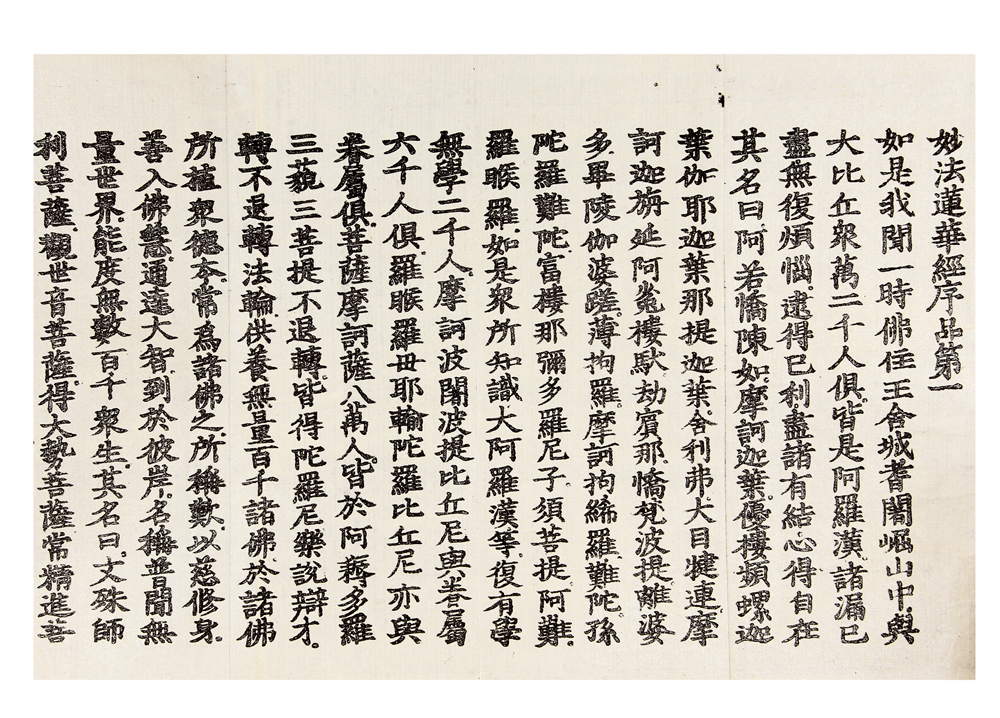 妙法蓮華經序品第一
如是我聞一時佛住王舍城耆闍崛山中與
大比丘衆萬二千人俱皆是阿羅漢諸漏已
盡無復煩惱逮得已利盡諸有結心得自在
其名曰阿若憍陳如摩訶迦葉優樓頻螺迦
葉伽耶迦葉那提迦葉舍利弗大目揵連摩
訶迦旃延阿㝹樓馱劫賓那憍梵波提離婆
多畢陵伽婆蹉薄拘羅摩訶拘絺羅難陀孫
陀羅難陀富樓那彌多羅尼子須菩提阿難
羅睺羅如是衆所知識大阿羅漢等復有學
無學二千人摩訶波闍波提比丘尼與眷屬
六千人俱羅睺羅毋耶輸陀羅比丘尼亦與
眷屬俱菩薩摩訶薩八萬人皆於阿耨多羅
三藐三菩提不退轉皆得陀羅尼樂說辯才
轉不退轉法輪供養無量百千諸佛於諸佛
所植衆德夲常爲諸佛之所稱歎以慈修身
善入佛慧通達大智到於彼岸名稱普聞無
量世界能度無數百千衆生其名曰文殊師
利菩薩觀世音菩薩得大勢菩薩常精進菩